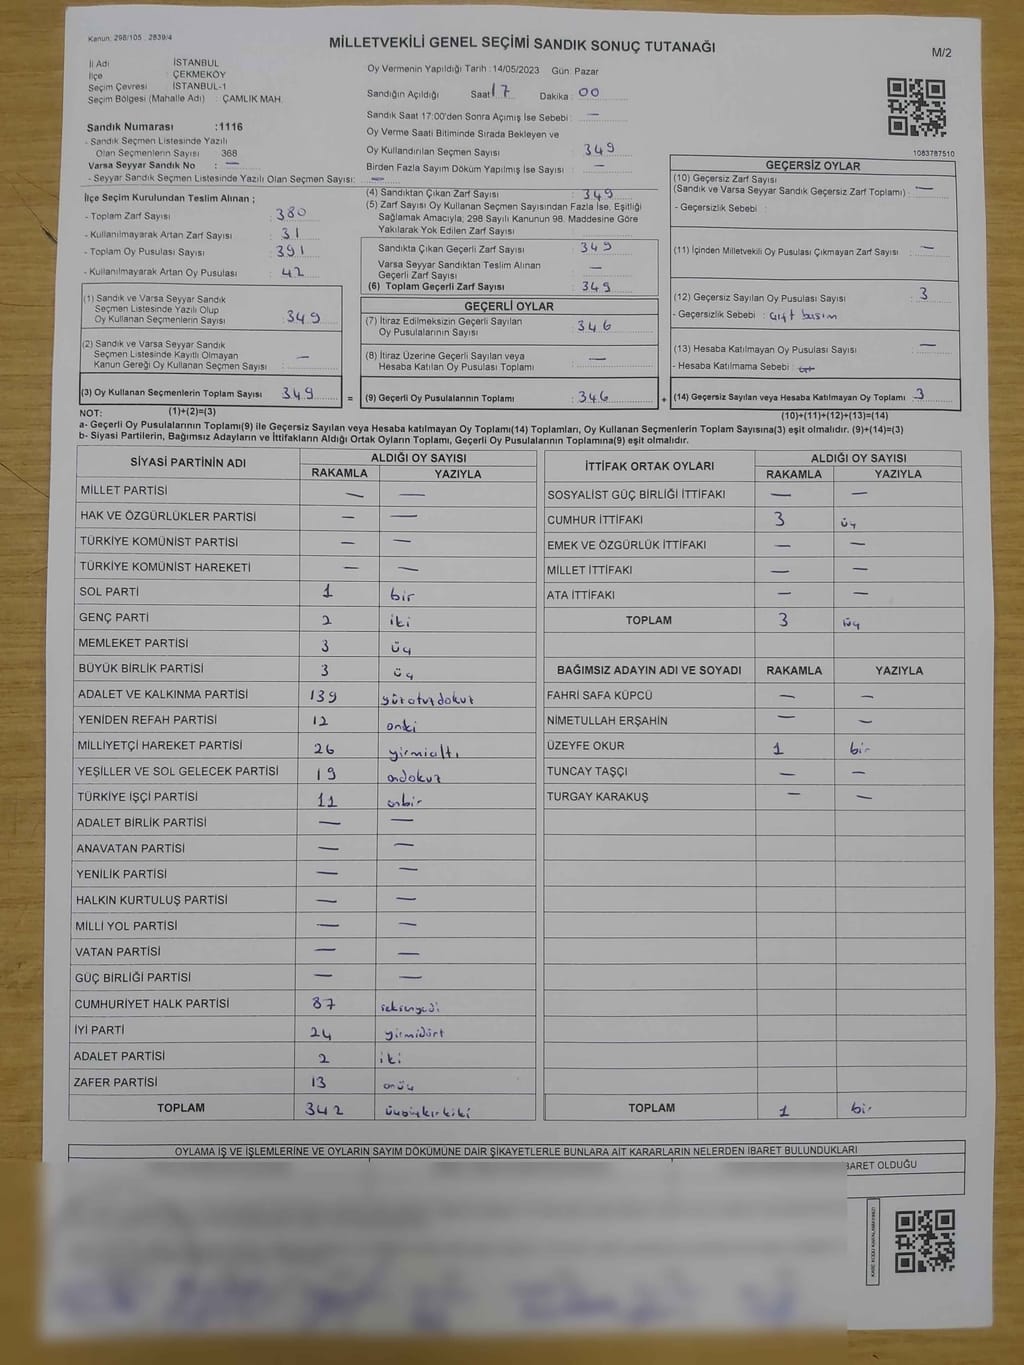 Kanun: 298/105 : 2839/4
MİLLETVEKİLİ GENEL SEÇİMİ SANDIK SONUÇ TUTANAĞI
M/2
İl Adı İSTANBUL
İlçe : ÇEKMEKÖY
Seçim Çevresi İSTANBUL-1
Seçim Bölgesi (Mahalle Adı) : ÇAMLIK MAH.
Oy Vermenin Yapıldığı Tarih : 14/05/2023 Gün: Pazar
Sandığın Açıldığı Saat 17 Dakika : 00
Sandık Saat 17:00'den Sonra Açımış İse Sebebi : —
Sandık Numarası :1116
Oy Verme Saati Bitiminde Sırada Bekleyen ve
Oy Kullandırılan Seçmen Sayısı : 349
- Sandık Seçmen Listesinde Yazılı
Olan Seçmenlerin Sayısı 368
Varsa Seyyar Sandık No : —
Birden Fazla Sayım Döküm Yapılmış İse Sayısı : —
- Seyyar Sandık Seçmen Listesinde Yazılı Olan Seçmen Sayısı: —
1083787510
İlçe Seçim Kurulundan Teslim Alınan ;
- Toplam Zarf Sayısı : 380
- Kullanılmayarak Artan Zarf Sayısı : 31
- Toplam Oy Pusulası Sayısı : 391
- Kullanılmayarak Artan Oy Pusulası : 42
(1) Sandık ve Varsa Seyyar Sandık
Seçmen Listesinde Yazılı Olup
Oy Kullanan Seçmenlerin Sayısı : 349
(2) Sandık ve Varsa Seyyar Sandık
Seçmen Listesinde Kayıtlı Olmayan
Kanun Gereği Oy Kullanan Seçmen Sayısı : —
(3) Oy Kullanan Seçmenlerin Toplam Sayısı : 349 =
(4) Sandıktan Çıkan Zarf Sayısı : 349
(5) Zarf Sayısı Oy Kullanan Seçmen Sayısından Fazla İse, Eşitliği
Sağlamak Amacıyla; 298 Sayılı Kanunun 98. Maddesine Göre
Yakılarak Yok Edilen Zarf Sayısı :
Sandıkta Çıkan Geçerli Zarf Sayısı : 349
Varsa Seyyar Sandıktan Teslim Alınan
Geçerli Zarf Sayısı : —
(6) Toplam Geçerli Zarf Sayısı : 349
GEÇERLİ OYLAR
(7) İtiraz Edilmeksizin Geçerli Sayılan
Oy Pusulalarının Sayısı : 346
(8) İtiraz Üzerine Geçerli Sayılan veya
Hesaba Katılan Oy Pusulası Toplamı : —
(9) Geçerli Oy Pusulalarının Toplamı : 346 +
GEÇERSİZ OYLAR
(10) Geçersiz Zarf Sayısı
(Sandık ve Varsa Seyyar Sandık Geçersiz Zarf Toplamı) : —
- Geçersizlik Sebebi :
(11) İçinden Milletvekili Oy Pusulası Çıkmayan Zarf Sayısı : —
(12) Geçersiz Sayılan Oy Pusulası Sayısı : 3
- Geçersizlik Sebebi : Çift basım
(13) Hesaba Katılmayan Oy Pusulası Sayısı : —
- Hesaba Katılmama Sebebi :
(14) Geçersiz Sayılan veya Hesaba Katılmayan Oy Toplamı : 3
NOT: (1)+(2)=(3)
(10)+(11)+(12)+(13)=(14)
a- Geçerli Oy Pusulasının Toplamı(9) ile Geçersiz Sayılan veya Hesaba katılmayan Oy Toplamı(14) Toplamları, Oy Kullanan Seçmenlerin Toplam Sayısına(3) eşit olmalıdır. (9)+(14)=(3)
b- Siyasi Partilerin, Bağımsız Adayların ve İttifakların Aldığı Ortak Oyların Toplamı, Geçerli Oy Pusulalarının Toplamına(9) eşit olmalıdır.
SİYASİ PARTİNİN ADI ALDIĞI OY SAYISI
RAKAMLA YAZIYLA
MİLLET PARTİSİ — —
HAK VE ÖZGÜRLÜKLER PARTİSİ — —
TÜRKİYE KOMÜNİST PARTİSİ — —
TÜRKİYE KOMÜNİST HAREKETİ — —
SOL PARTİ 1 bir
GENÇ PARTİ 2 iki
MEMLEKET PARTİSİ 3 üç
BÜYÜK BİRLİK PARTİSİ 3 üç
ADALET VE KALKINMA PARTİSİ 139 yüzotuzdokuz
YENİDEN REFAH PARTİSİ 12 oniki
MİLLİYETÇİ HAREKET PARTİSİ 26 yirmialtı
YEŞİLLER VE SOL GELECEK PARTİSİ 19 ondokuz
TÜRKİYE İŞÇİ PARTİSİ 11 onbir
ADALET BİRLİK PARTİSİ — —
ANAVATAN PARTİSİ — —
YENİLİK PARTİSİ — —
HALKIN KURTULUŞ PARTİSİ — —
MİLLİ YOL PARTİSİ — —
VATAN PARTİSİ — —
GÜÇ BİRLİĞİ PARTİSİ — —
CUMHURİYET HALK PARTİSİ 87 seksenyedi
İYİ PARTİ 24 yirmidört
ADALET PARTİSİ 2 iki
ZAFER PARTİSİ 13 onüç
TOPLAM 342 üçyüzkırkiki
İTTİFAK ORTAK OYLARI ALDIĞI OY SAYISI
RAKAMLA YAZIYLA
SOSYALİST GÜÇ BİRLİĞİ İTTİFAKI — —
CUMHUR İTTİFAKI 3 üç
EMEK VE ÖZGÜRLÜK İTTİFAKI — —
MİLLET İTTİFAKI — —
ATA İTTİFAKI — —
TOPLAM 3 üç
BAĞIMSIZ ADAYIN ADI VE SOYADI RAKAMLA YAZIYLA
FAHRİ SAFA KÜPCÜ — —
NİMETULLAH ERŞAHİN — —
ÜZEYFE OKUR 1 bir
TUNCAY TAŞÇI — —
TURGAY KARAKUŞ — —
TOPLAM 1 bir
OYLAMA İŞ VE İŞLEMLERİNE VE OYLARIN SAYIM DÖKÜMÜNE DAİR ŞİKAYETLERLE BUNLARA AİT KARARLARIN NELERDEN İBARET BULUNDUKLARI
BARET OLDUĞU